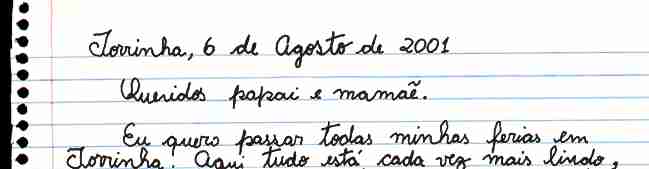 Torrinha, 6 de Agosto de 2001
Queridos papai e mamaẽ.
Eu quero passar todas minhas ferias em
Torrinha! Aqui tudo está cada vez mais lindo,